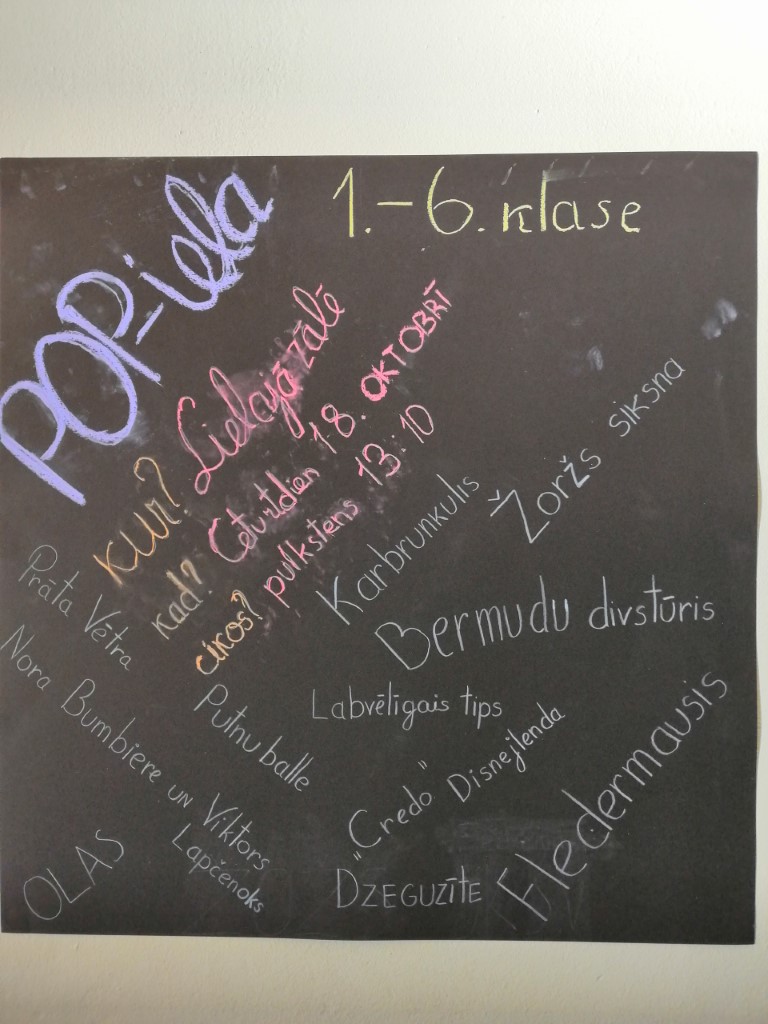 POP-iela
1.-6. klase
KUR? Lielajā zālē
kad? Ceturtdien 18. OKTOBRĪ
cikos? pulkstens 13:10
Žoržs siksna
Karbrunkulis
Bermudu divstūris
Prāta Vētra
Nora Bumbiere UN Viktors
Lapčenoks
Putnu balle
Labvēlīgais tips
„Credo” Disnejlenda
Fledermausis
OLAS
DZEGUZĪTE